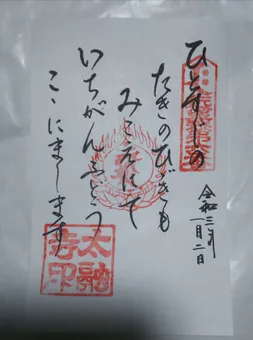 ひとすぢの
たきのひびきも
みこえにて
いちがんふどう
ここにまします
令和三年
一月二日
太融
寺印